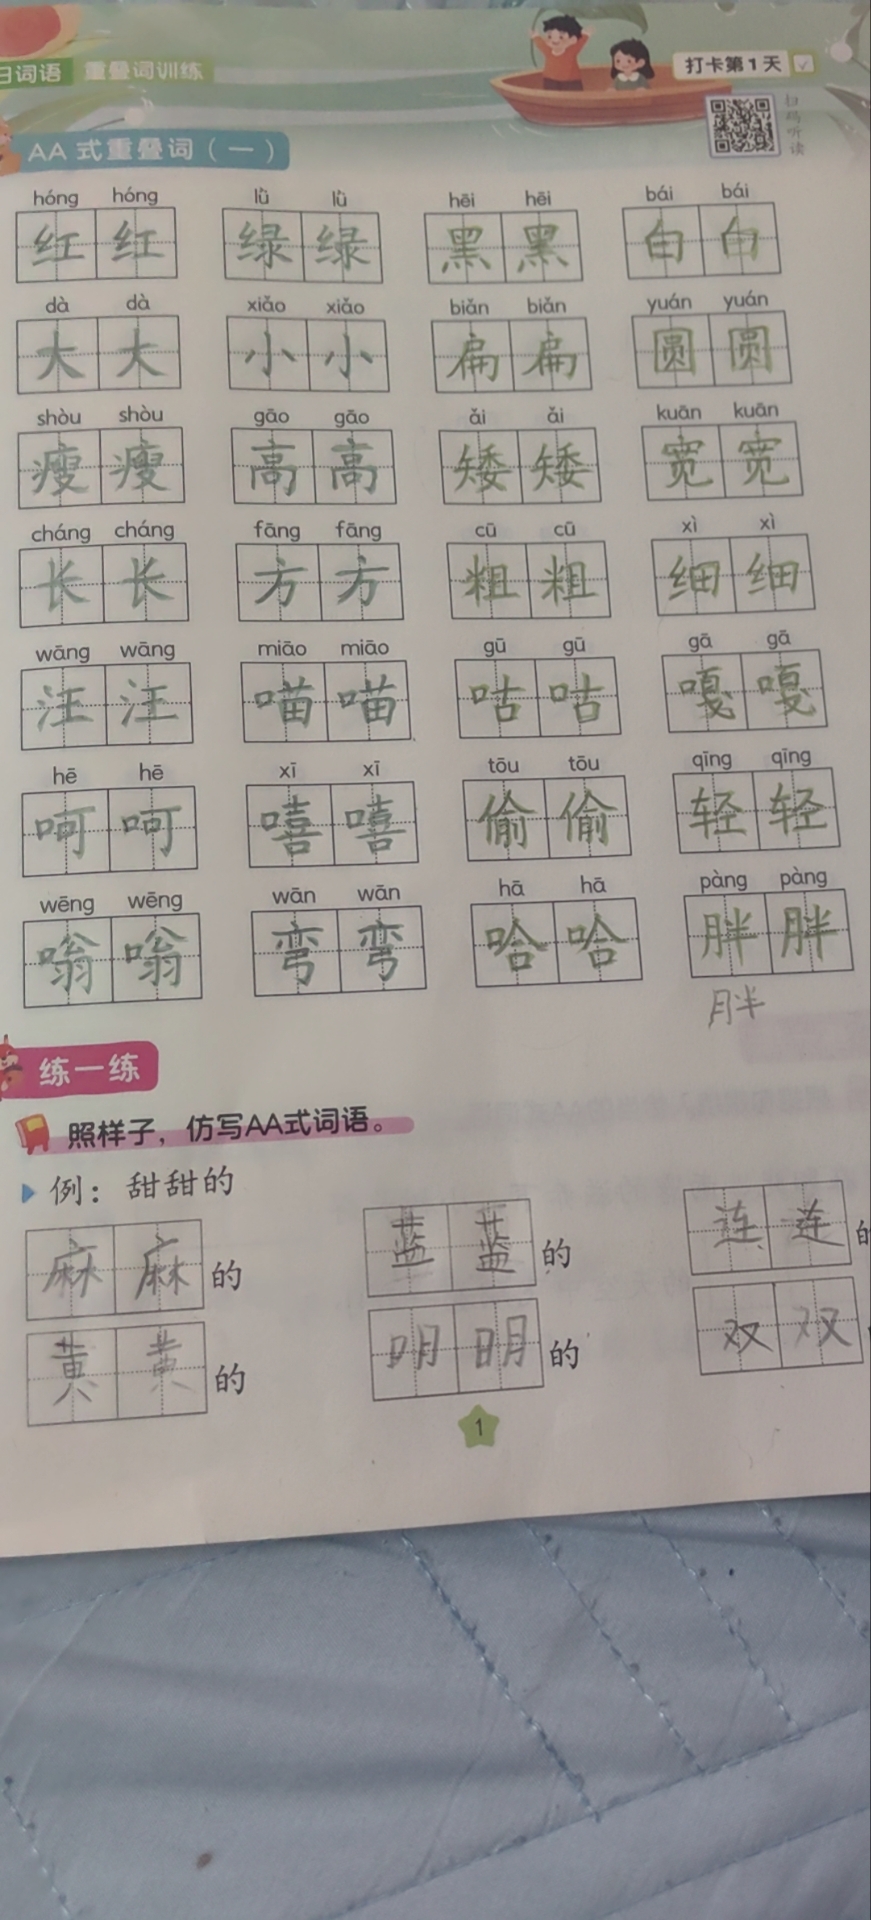 日词语 重叠词训练 打卡第1天
扫码听读
AA 式重叠词（一）
hóng hóng lǜ lǜ hēi hēi bái bái
红红 绿绿 黑黑 白白
dà dà xiǎo xiǎo biǎn biǎn yuán yuán
大大 小小 扁扁 圆圆
shòu shòu gāo gāo ǎi ǎi kuān kuān
瘦瘦 高高 矮矮 宽宽
cháng cháng fāng fāng cū cū xì xì
长长 方方 粗粗 细细
wāng wāng miāo miāo gū gū gā gā
汪汪 喵喵 咕咕 嘎嘎
hē hē xī xī tōu tōu qīng qīng
呵呵 嘻嘻 偷偷 轻轻
wēng wēng wān wān hā hā pàng pàng
嗡嗡 弯弯 哈哈 胖胖
胖
练一练
照样子，仿写AA式词语。
例：甜甜的
麻麻的 蓝蓝的 连连的
黄黄的 明明的 双双
1